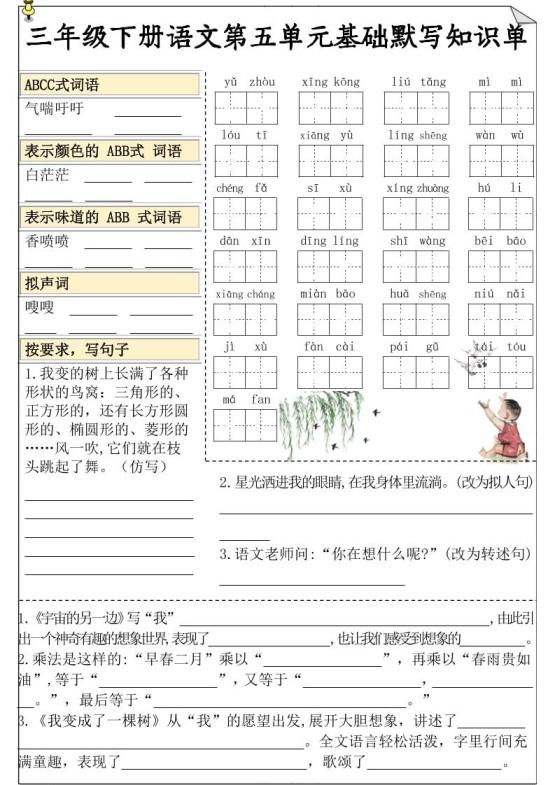 三年级下册语文第五单元基础默写知识单
ABCC式词语
气喘吁吁
表示颜色的 ABB式 词语
白茫茫
表示味道的 ABB 式词语
香喷喷
拟声词
嗖嗖
按要求，写句子
1.我变的树上长满了各种
形状的鸟窝：三角形的、
正方形的，还有长方形圆
形的、椭圆形的、菱形的
……风一吹,它们就在枝
头跳起了舞。（仿写）
yǔ zhòu xīng kōng liú tǎng mì mì
lóu tī xiāng yù líng shēng wàn wù
chéng fǎ sī xù xíng zhuàng hú li
dān xīn dīng líng shī wàng bēi bāo
xiāng cháng miàn bāo huā shēng niú nǎi
jì xù fàn cài pái gǔ tái tóu
má fan
2.星光洒进我的眼睛,在我身体里流淌。(改为拟人句)
3.语文老师问:“你在想什么呢?”(改为转述句)
1.《宇宙的另一边》写“我”____,由此引
出一个神奇有趣的想象世界,表现了____,也让我们感受到想象的____。
2.乘法是这样的:“早春二月”乘以“____”，再乘以“春雨贵如
油”,等于“____”,又等于“____，____
__。”，最后等于“____。”
3.《我变成了一棵树》从“我”的愿望出发,展开大胆想象，讲述了____
____。全文语言轻松活泼，字里行间充
满童趣，表现了____，歌颂了____。